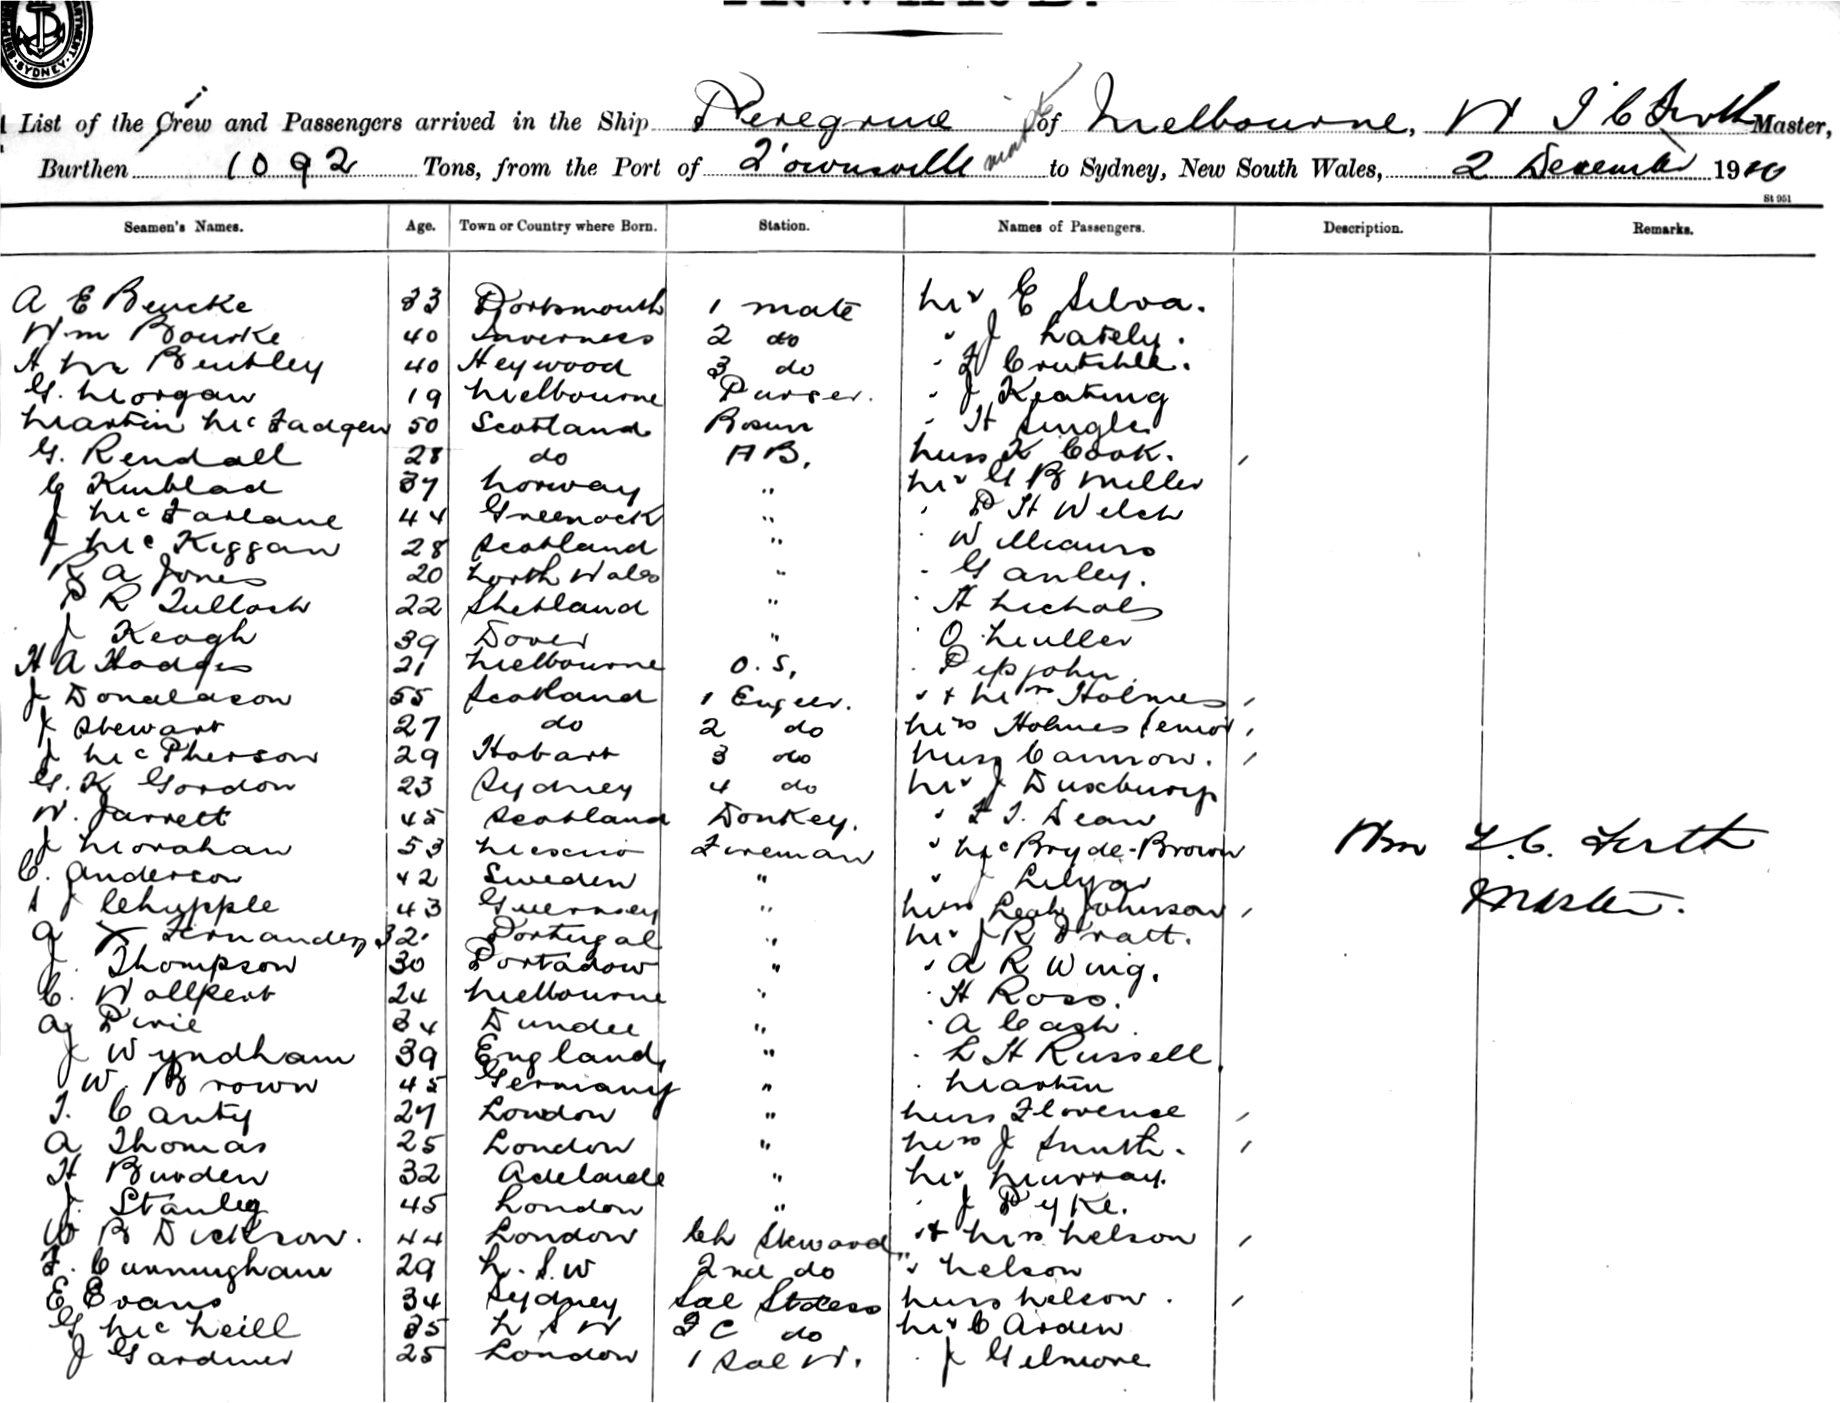 List of the Crew and Passengers arrived in the Ship Peregrine of Melbourne, W J C Firth Master,
Burthen 1092 Tons, from the Port of Townsville to Sydney, New South Wales, 2 December 1910
St 951
Seamen's Names. Age. Town or Country where Born. Station. Names of Passengers. Description. Remarks.
A E Beucke 33 Portsmouth 1 mate Mr E Silva.
Wm Bourke 40 Inverness 2 do " J Lately.
H Mc Bentley 40 Heywood 3 do " F Crutchle.
G. Morgan 19 Melbourne Purser. " J Keating
Martin McFadgen 50 Scotland Bosun " H Single
G. Rendall 28 do AB, Miss K Cook.
C Kinblad 37 Norway " Mr G B Miller
J McFarlane 44 Greenock " " P H Welch
J McKiggan 28 Scotland " " Williams
R A Jones 20 North Wales " " Ganley.
P R Tulloch 22 Shetland " " A Nichols
J Keogh 39 Dover " " O Muller
H A Hodges 21 Melbourne O.S, " Pepjohn
J Donaldson 55 Scotland 1 Engeer. " + Mrs Holmes
J Stewart 27 do 2 do Mrs Holmes senior
J McPherson 29 Hobart 3 do Miss Cannow.
G. K Gordon 23 Sydney 4 do Mr J Duxbury
W. Jarrett 45 Scotland Donkey. " F. T. Dean
J Morahan 53 Mexico Fireman " McBryde-Brown Wm J. C. Firth
C. Anderson 42 Sweden " " J Lilyar Master.
J Chypple 43 Guernsey " Miss Leah Johnson
A X Fernandez 32 Portugal " Mr J R Pratt.
J. Thompson 30 Portadow " " A R Wing.
C. Wollkert 24 Melbourne " " H Ross.
A Pirie 34 Dundee " " A Cash.
J Wyndham 39 England " " L H Russell
W Brown 45 Germany " " Martin
T. Canty 27 London " Miss Florence
A Thomas 25 London " Mrs J Smith.
H Burden 32 Adelaide " Mr Murray.
J. Stanley 45 London " " J Pyke.
W B Dickson. 44 London Ch Steward " + Mrs Nelson
F. Cunningham 29 N.S.W 2nd do " Nelson
E Evans 34 Sydney Sal Stdess Miss Nelson.
G McNeill 35 N S W F C do Mr C Arden
J Gardner 25 London 1 Sal W. " J Gilmore